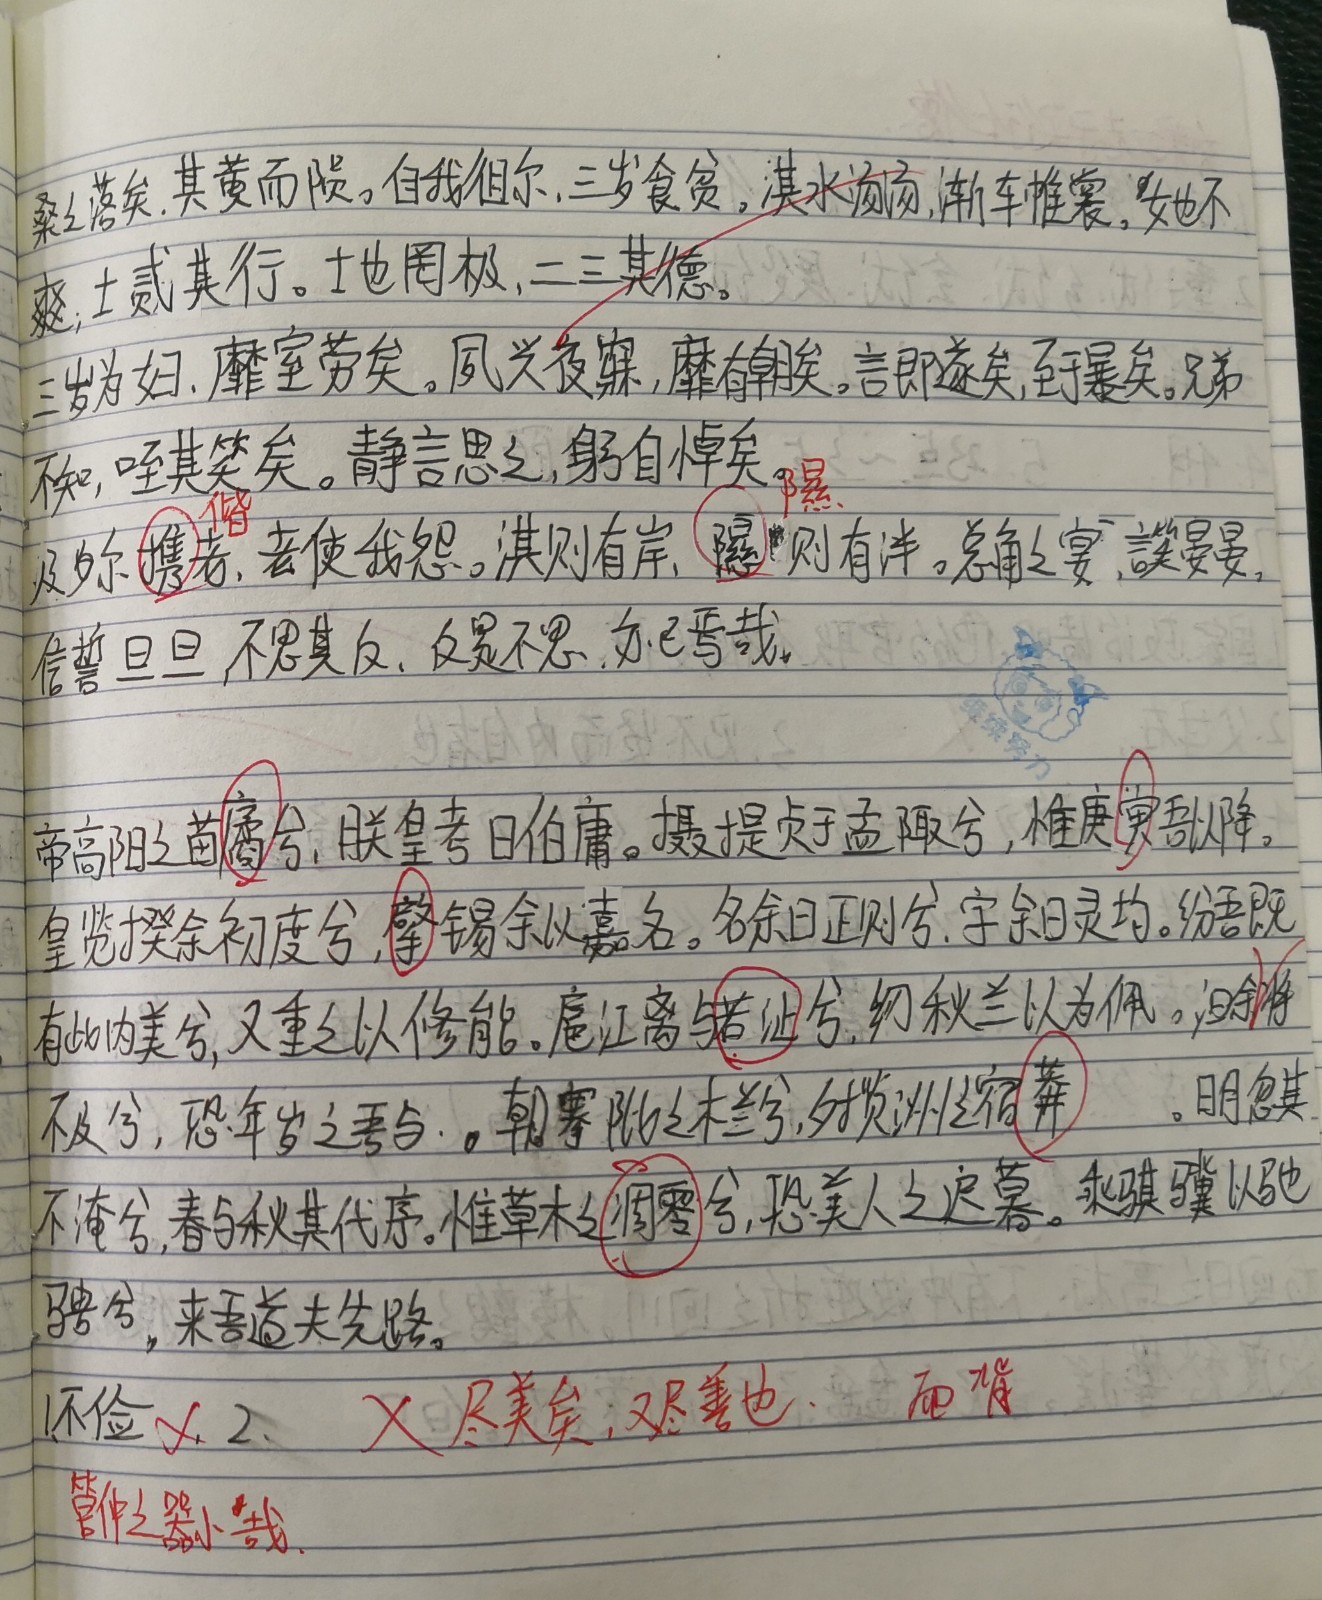 桑之落矣,其黄而陨。自我徂尔,三岁食贫。淇水汤汤,渐车帷裳。女也不
爽,士贰其行。士也罔极,二三其德。
三岁为妇,靡室劳矣。夙兴夜寐,靡有朝矣。言即遂矣,至于暴矣。兄弟
不知,咥其笑矣。静言思之,躬自悼矣。
偕 隰
及尔携老,老使我怨。淇则有岸,隰则有泮。总角之宴,言笑晏晏,
信誓旦旦,不思其反,反是不思,亦已焉哉。
继续努力
帝高阳之苗裔兮,朕皇考曰伯庸。摄提贞于孟陬兮,惟庚寅吾以降。
皇览揆余初度兮,肇锡余以嘉名。名余曰正则兮,字余曰灵均。纷吾既
有此内美兮,又重之以修能。扈江离与若沚兮,纫秋兰以为佩。汩余将
不及兮,恐年岁之吾与.。朝搴阰之木兰兮,夕揽洲之宿莽 。日月忽其
不淹兮,春与秋其代序。惟草木之凋零兮,恐美人之迟暮。乘骐骥以驰
骋兮,来吾道夫先路。
1.不俭 × 2. × 尽美矣,又尽善也. 面背
管仲之器小哉.